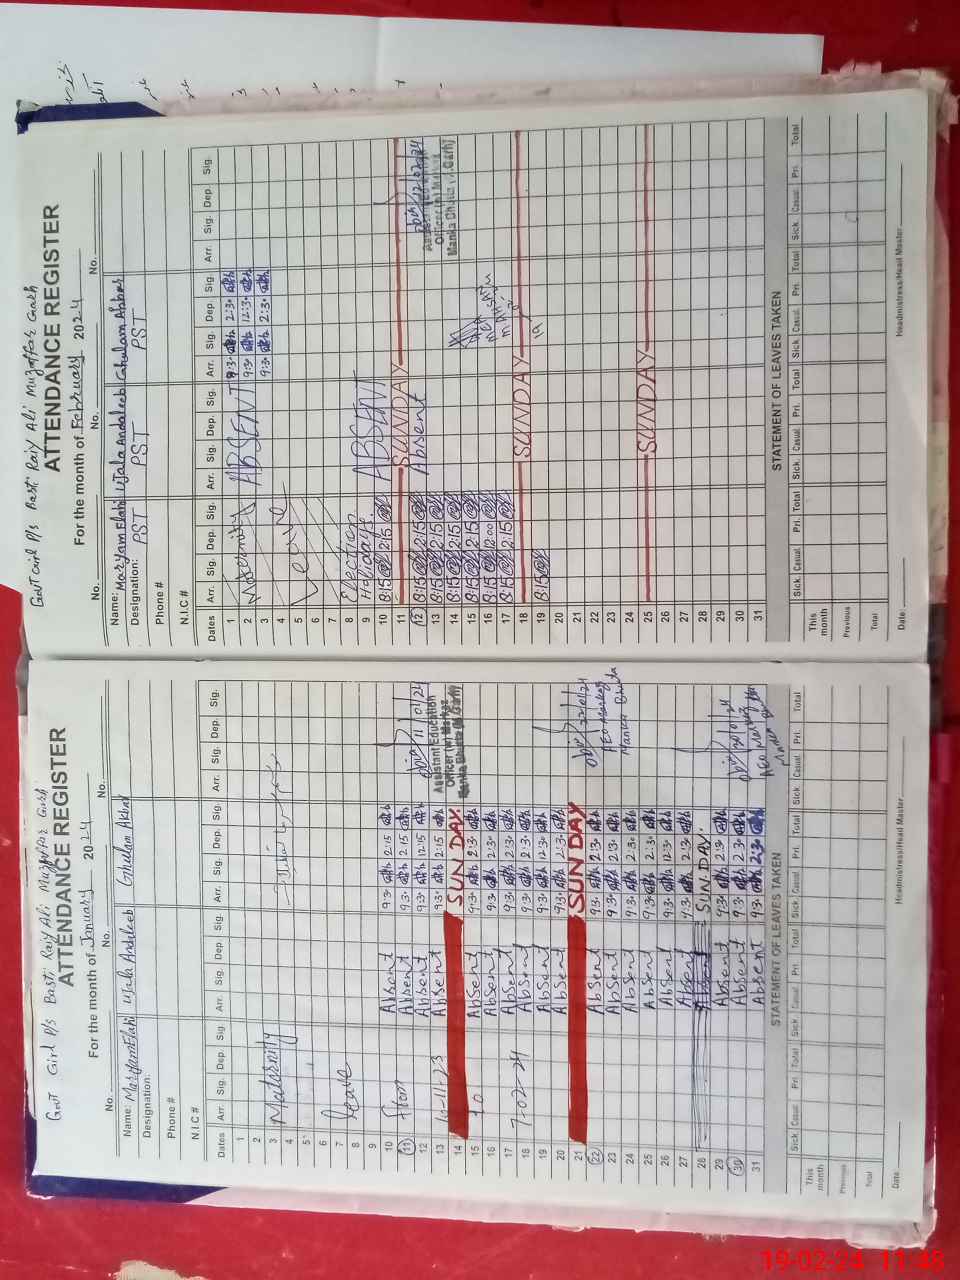 Govt Girl P/s Basti Raiy Ali Muzaffar Garh
ATTENDANCE REGISTER
For the month of January 2024
No. No. No.
Name: Maryam Elahi Ujala Andaleeb Ghulam Akbar
Designation:
Phone #
N.I.C #
Dates Arr. Sig. Dep. Sig. Arr. Sig. Dep. Sig. Arr. Sig. Dep. Sig. Arr. Sig. Dep. Sig.
1
2
3 Maternity
4
5
6
7 Leave
8
9
10 From Absent 9:3० 2:15
11 Absent 9:3० 2:15 11/01/24
12 Absent 9:3० 12:15 Assistant Education
13 10-11-23 Absent 9:3० 2:15 Officer (w) Markaz
14 SUNDAY. Manka Bhutta (M.Garh)
15 To Absent 9:3० 2:3०
16 Absent 9:3० 2:3०
17 Absent 9:3० 2:3०
18 7-02-24 Absent 9:3० 2:3०
19 Absent 9:3० 12:3०
20 Absent 9:3० 2:3०
21 SUNDAY
22 Absent 9:3० 2:3० 22/01/24
23 Absent 9:3० 2:3० AEO Markaz
24 Absent 9:3० 2:3० Manka Bhutta
25 Absent 9:3० 2:3०
26 Absent 9:3० 12:3०
27 Absent 9:3० 2:3०
28 SUNDAY.
29 Absent 9:3० 2:3०
30 Absent 9:3० 2:3०
31 Absent 9:3० 2:3० AEO Markaz
STATEMENT OF LEAVES TAKEN
Sick. Casual. Pri. Total Sick. Casual. Pri. Total Sick. Casual. Pri. Total Sick. Casual. Pri. Total
This month
Previous
Total
Date: Headmistress/Head Master
Govt Girl P/s Basti Raiy Ali Muzaffar Garh
ATTENDANCE REGISTER
For the month of February 2024
No. No. No.
Name: Maryam Elahi Ujala Andaleeb Ghulam Akbar
Designation: PST PST PST
Phone #
N.I.C #
Dates Arr. Sig. Dep. Sig. Arr. Sig. Dep. Sig. Arr. Sig. Dep. Sig. Arr. Sig. Dep. Sig.
1 9:3० 2:3०
2 Maternity ABSENT 9:3० 12:3०
3 9:3० 2:3०
4
5 Leave
6
7
8 Election
9 Holidays ABSENT
10 8:15 2:15
11 SUNDAY
12 8:15 2:15 Absent 12/02/24
13 8:15 2:15 Officer (w) Markaz
14 8:15 2:15 Manka Bhutta (M.Garh)
15 8:15 2:15
16 8:15 12:00
17 8:15 2:15
18 SUNDAY
19 8:15
20
21
22
23
24
25 SUNDAY
26
27
28
29
30
31
STATEMENT OF LEAVES TAKEN
Sick. Casual. Pri. Total Sick. Casual. Pri. Total Sick. Casual. Pri. Total Sick. Casual. Pri. Total
This month
Previous
Total
Date: Headmistress/Head Master
19-02-24 11:48